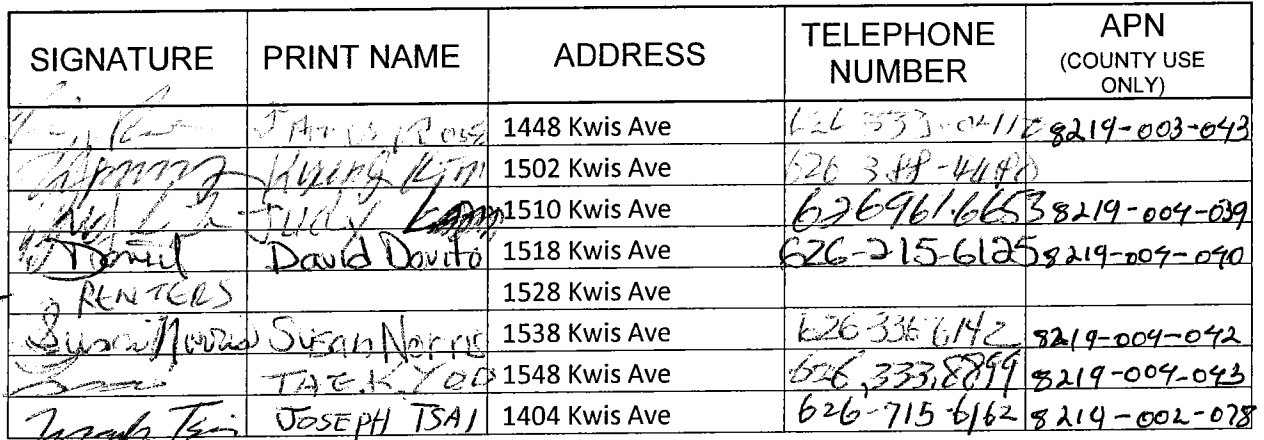 SIGNATURE PRINT NAME ADDRESS TELEPHONE NUMBER APN (COUNTY USE ONLY)
1448 Kwis Ave 8219-003-043
Kyung Kim 1502 Kwis Ave
Judy 1510 Kwis Ave 626 961.6653 8219-004-039
David Dovito 1518 Kwis Ave 626-215-6125 8219-004-040
RENTERS 1528 Kwis Ave
Susan Norris Susan Norris 1538 Kwis Ave 626 336 6142 8219-004-042
TAE. K. YOO 1548 Kwis Ave 626,333,8899 8219-004-043
JOSEPH TSAI 1404 Kwis Ave 626-715-6162 8219-002-078